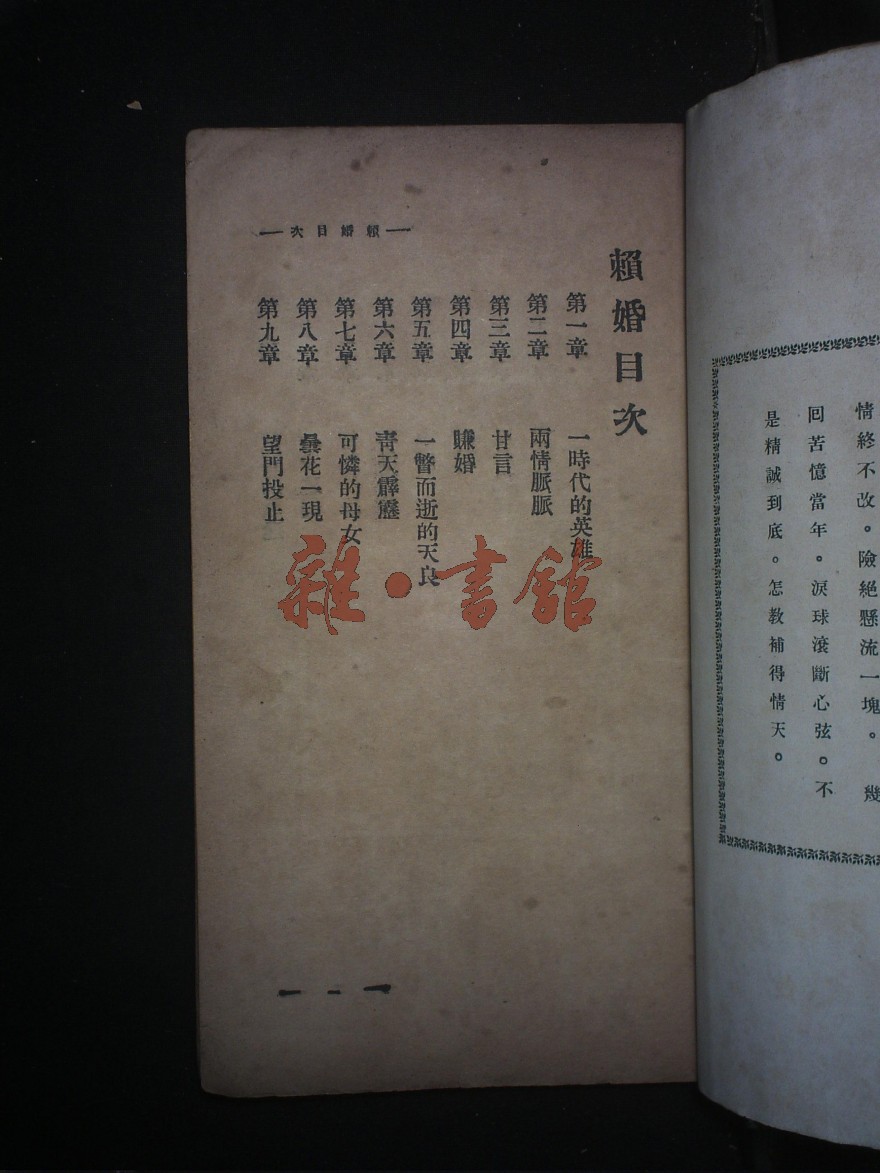 情終不改。險絕懸流一塊。幾
回苦憶當年。淚球滾斷心弦。不
是精誠到底。怎教補得情天。
賴婚目次
第一章 一時代的英雄
第二章 兩情脈脈
第三章 甘言
第四章 賺婚
第五章 一瞥而逝的天良
第六章 靑天霹靂
第七章 可憐的母女
第八章 曇花一現
第九章 望門投止
賴婚目次
一
雜·書館